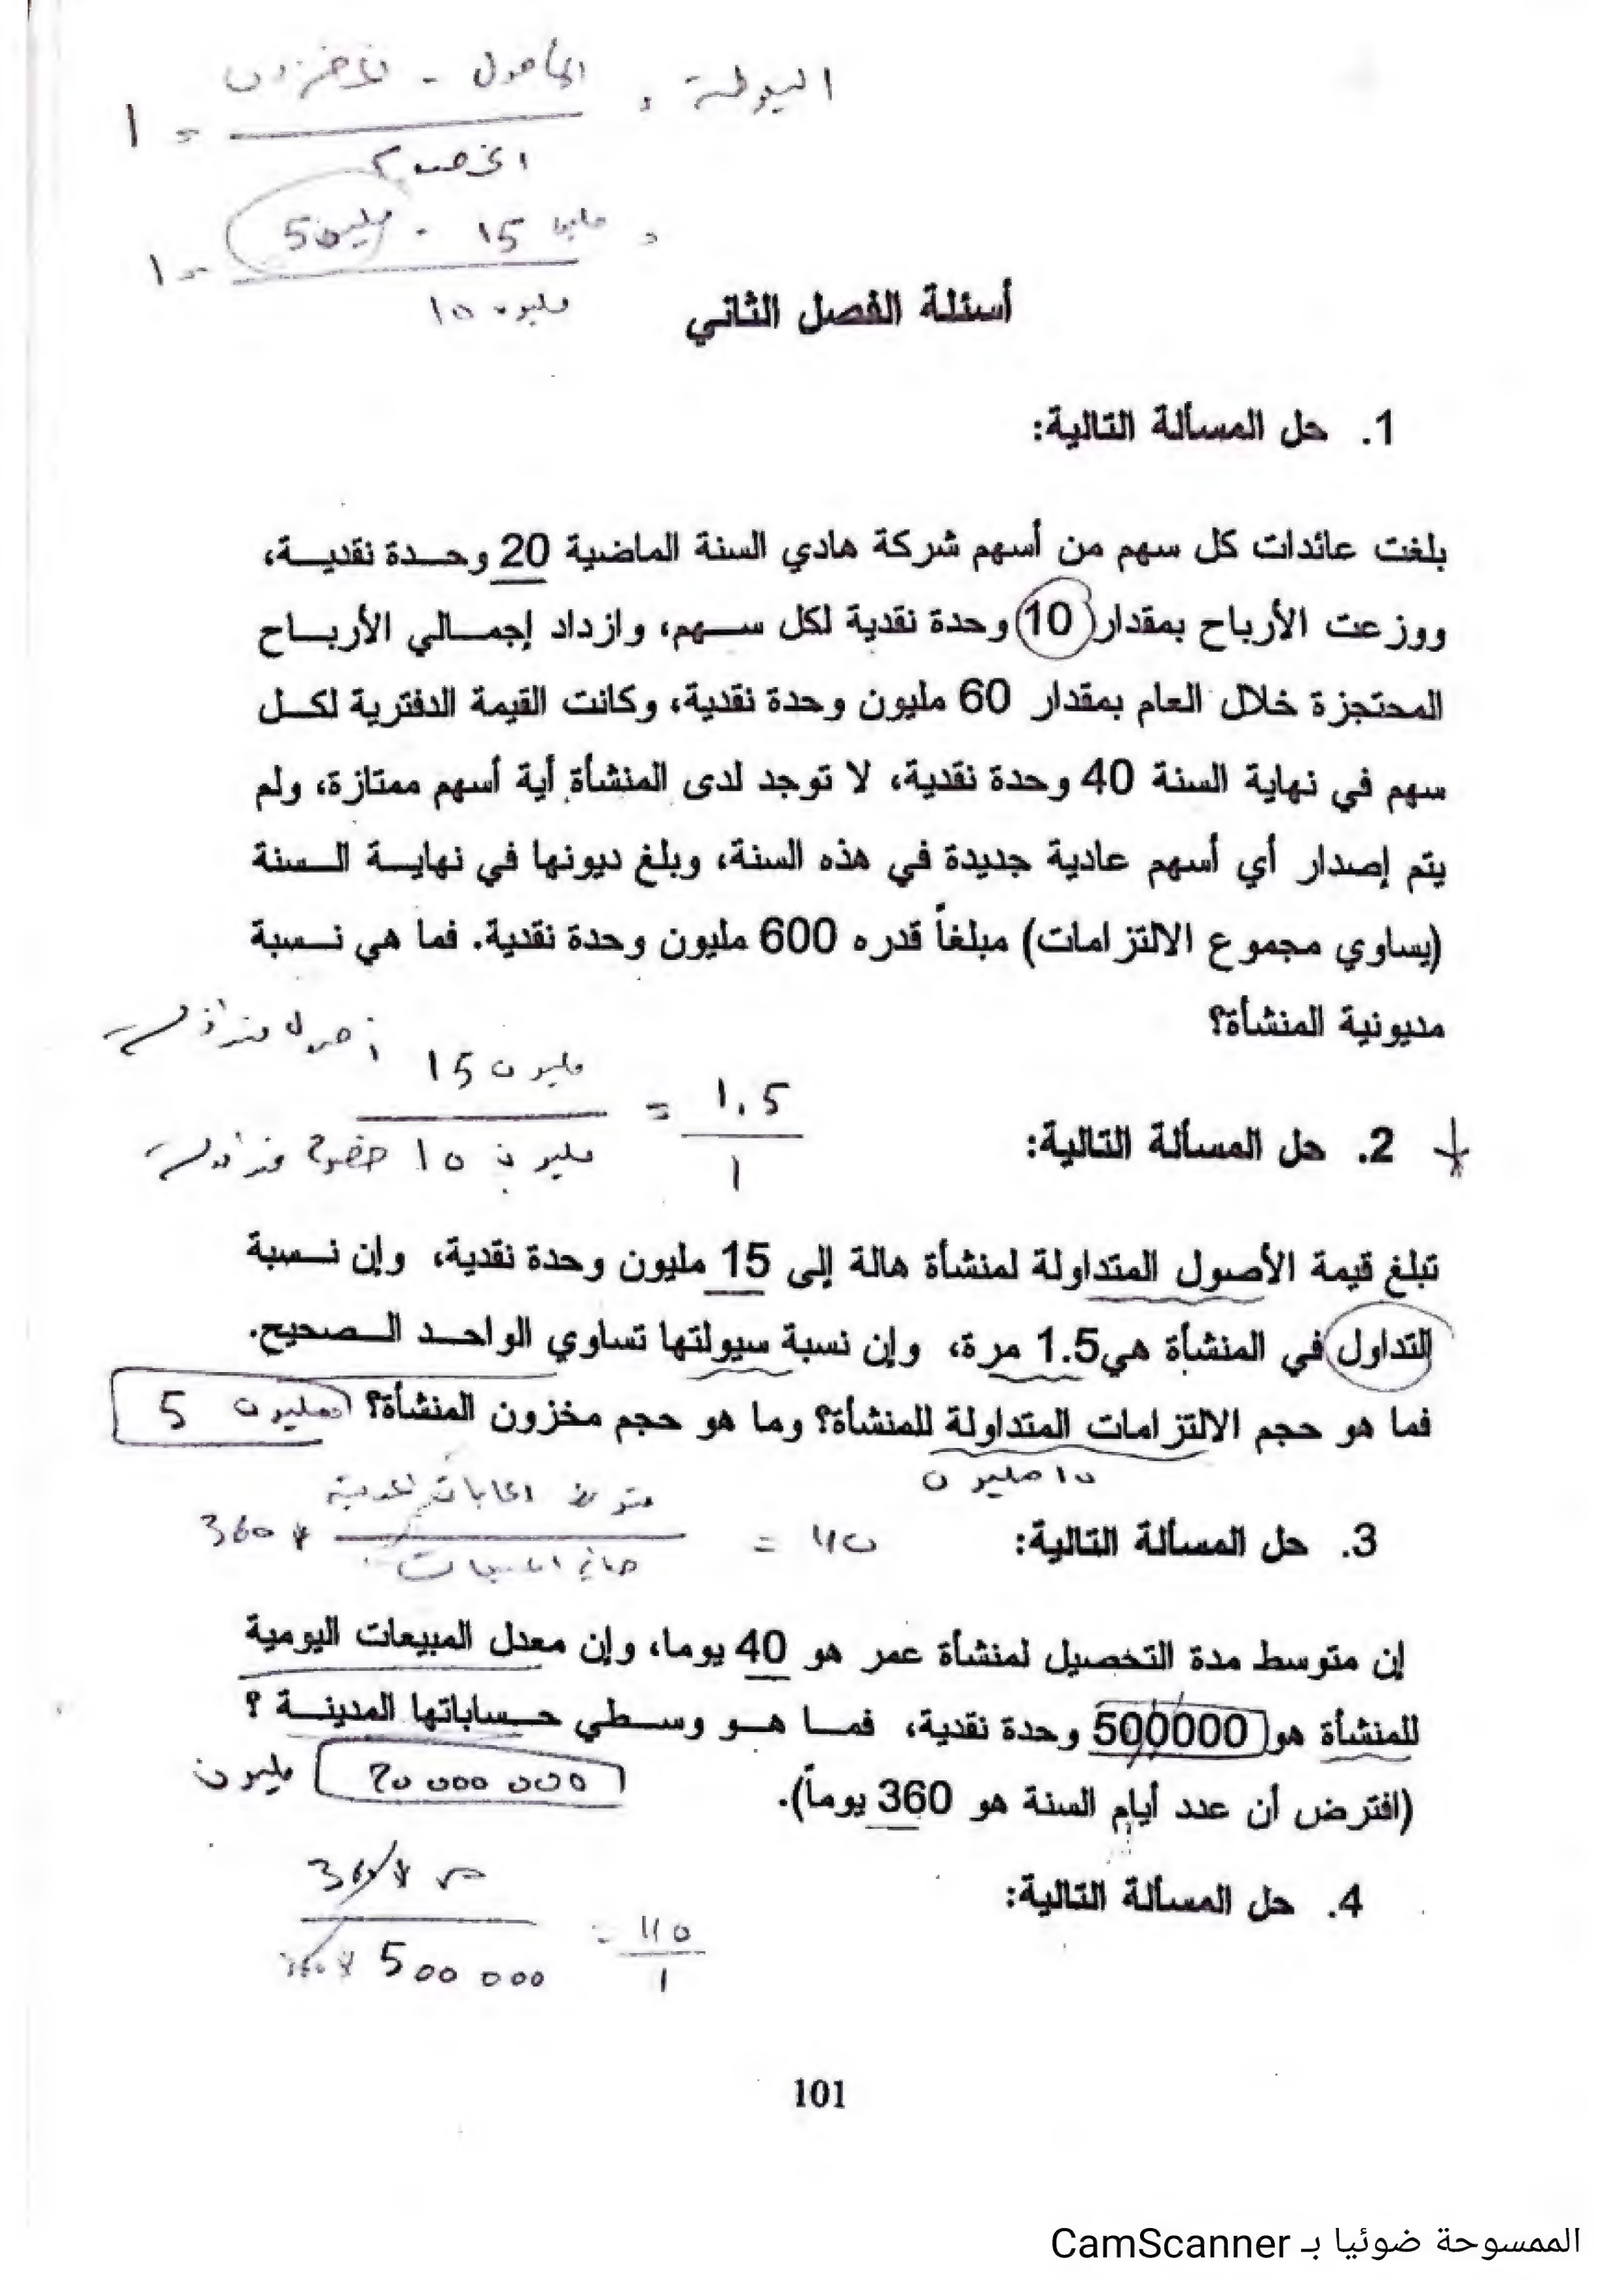 السيولة = الأصول - المخزون = 1
الخصوم
= 15 مليون - 5 مليون = 1
10 مليون
أسئلة الفصل الثاني
1. حل المسألة التالية:
بلغت عائدات كل سهم من أسهم شركة هادي السنة الماضية 20 وحدة نقدية،
ووزعت الأرباح بمقدار 10 وحدة نقدية لكل سهم، وازداد إجمالي الأرباح
المحتجزة خلال العام بمقدار 60 مليون وحدة نقدية، وكانت القيمة الدفترية لكل
سهم في نهاية السنة 40 وحدة نقدية، لا توجد لدى المنشأة أية أسهم ممتازة، ولم
يتم إصدار أي أسهم عادية جديدة في هذه السنة، وبلغ ديونها في نهاية السنة
(يساوي مجموع الالتزامات) مبلغاً قدره 600 مليون وحدة نقدية. فما هي نسبة
مديونية المنشأة؟
أصول متداولة 15 مليون = 1.5
10 مليون خصوم متداولة 1
2. حل المسألة التالية:
تبلغ قيمة الأصول المتداولة لمنشأة هالة إلى 15 مليون وحدة نقدية، وإن نسبة
التداول في المنشأة هي 1.5 مرة، وإن نسبة سيولتها تساوي الواحد الصحيح.
فما هو حجم الالتزامات المتداولة للمنشأة؟ وما هو حجم مخزون المنشأة؟ 5 مليون
10 مليون
3. حل المسألة التالية:
40 = متوسط الحسابات المدينة * 360
صافي المبيعات
إن متوسط مدة التحصيل لمنشأة عمر هو 40 يوما، وإن معدل المبيعات اليومية
للمنشأة هو 500000 وحدة نقدية، فما هو وسطي حساباتها المدينة ؟
20 000 000 مليون
(افترض أن عدد أيام السنة هو 360 يوماً).
4. حل المسألة التالية:
360 * س = 40
360 * 500 000 1
101
الممسوحة ضوئيا بـ CamScanner